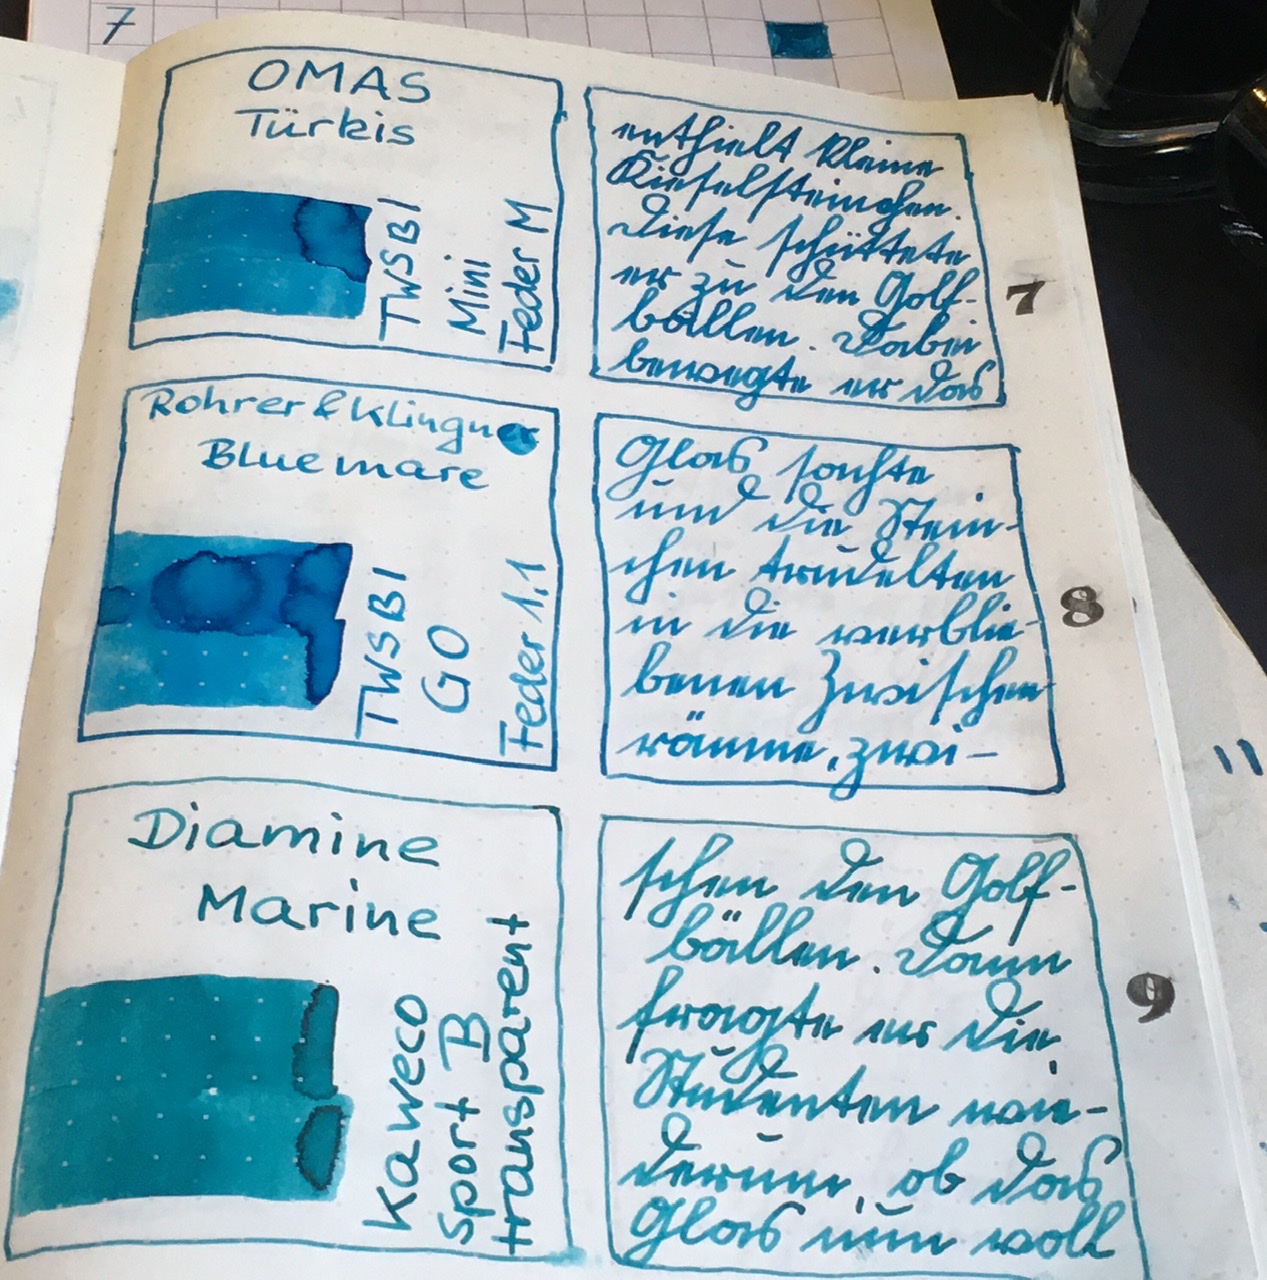 7
OMAS
Türkis
TWSBI
Mini
Feder M
enthielt kleine
Kieselsteinchen.
Diese schüttete
er zu den Golf-
bällen. Dabei
bewegte er das
7
Rohrer & Klingner
Blue mare
TWSBI
GO
Feder 1,1
Glas sachte
und die Stein-
chen trudelten
in die verblie-
benen Zwischen-
räume, zwi-
8
Diamine
Marine
Kaweco
Sport B
transparent
schen den Golf-
bällen. Dann
fragte er die
Studenten wie-
derum, ob das
Glas nun voll
9
11